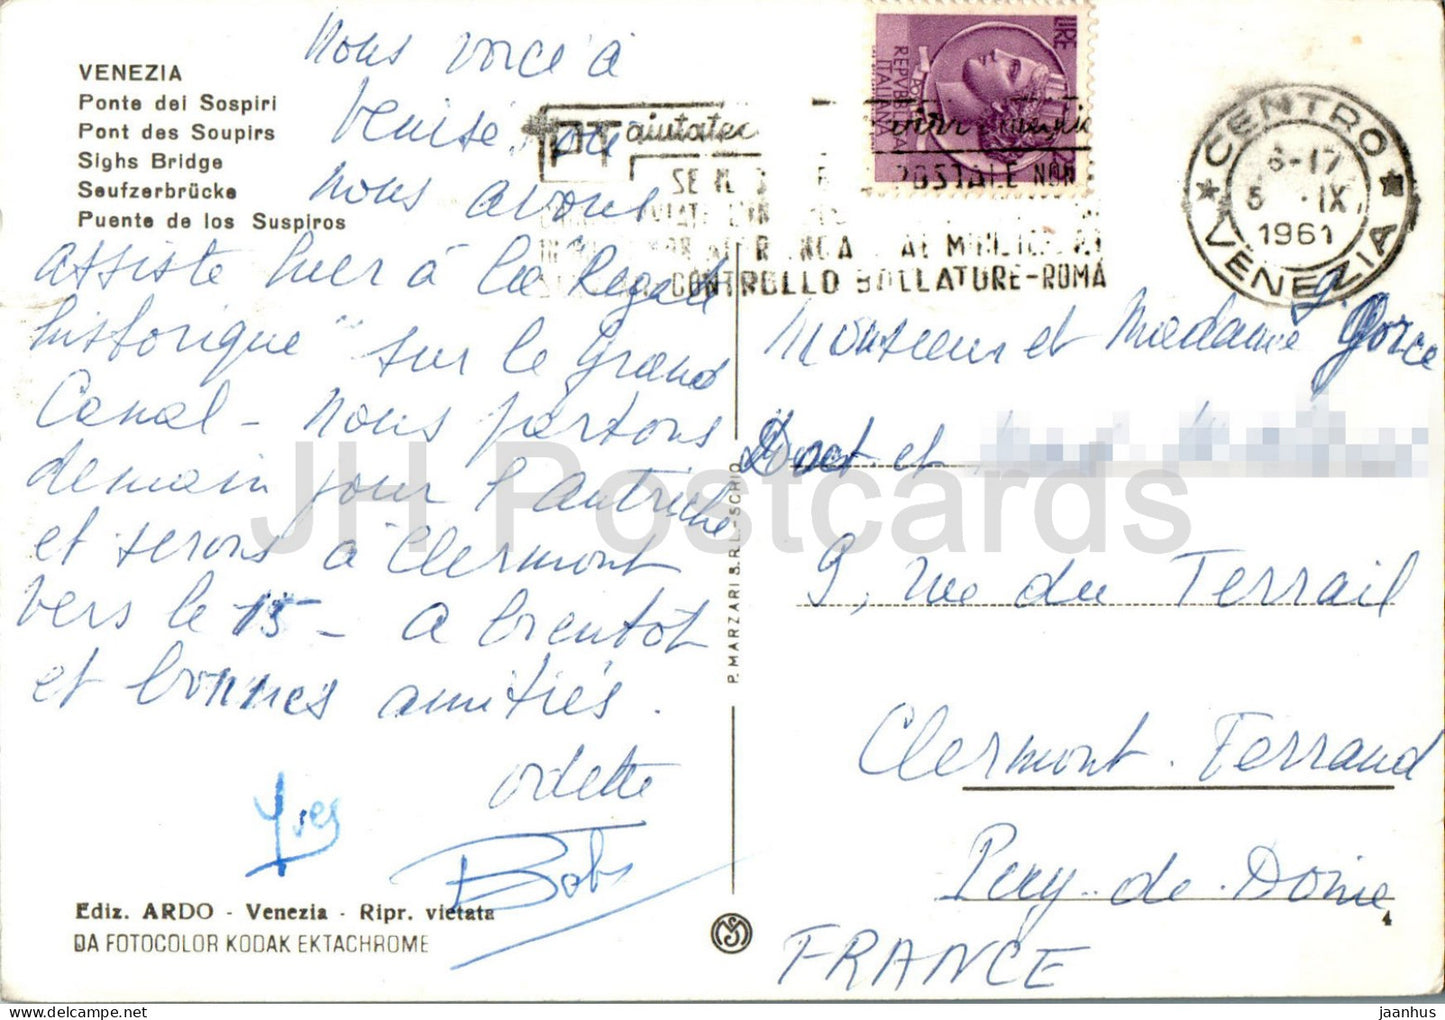 VENEZIA
Ponte dei Sospiri
Pont des Soupirs
Sighs Bridge
Seufzerbrücke
Puente de los Suspiros
Nous voici à
Venise, où
nous avons
assisté hier à la Regate
historique" sur le Grand
Canal - Nous partons
demain pour l'autriche
et serons à Clermont
vers le 15 - A bientôt
et bonnes amitiés.
Odette
Yves
Bob
Ediz. ARDO - Venezia - Ripr. vietata
DA FOTOCOLOR KODAK EKTACHROME
P. MARZARI S.R.L. - SCHIO
LIRE
REPVBBLICA
ITALIANA
PT aiutateci
POSTALE NON
CONTROLLO BOLLATURE-ROMA
CENTRO
VENEZIA
6-17
IX
1961
Monsieur et Madame Gorce
Doct et
9, rue du Terrail
Clermont. Ferrand
Puy-de-Dôme
FRANCE
4
JH Postcards
jaanhus